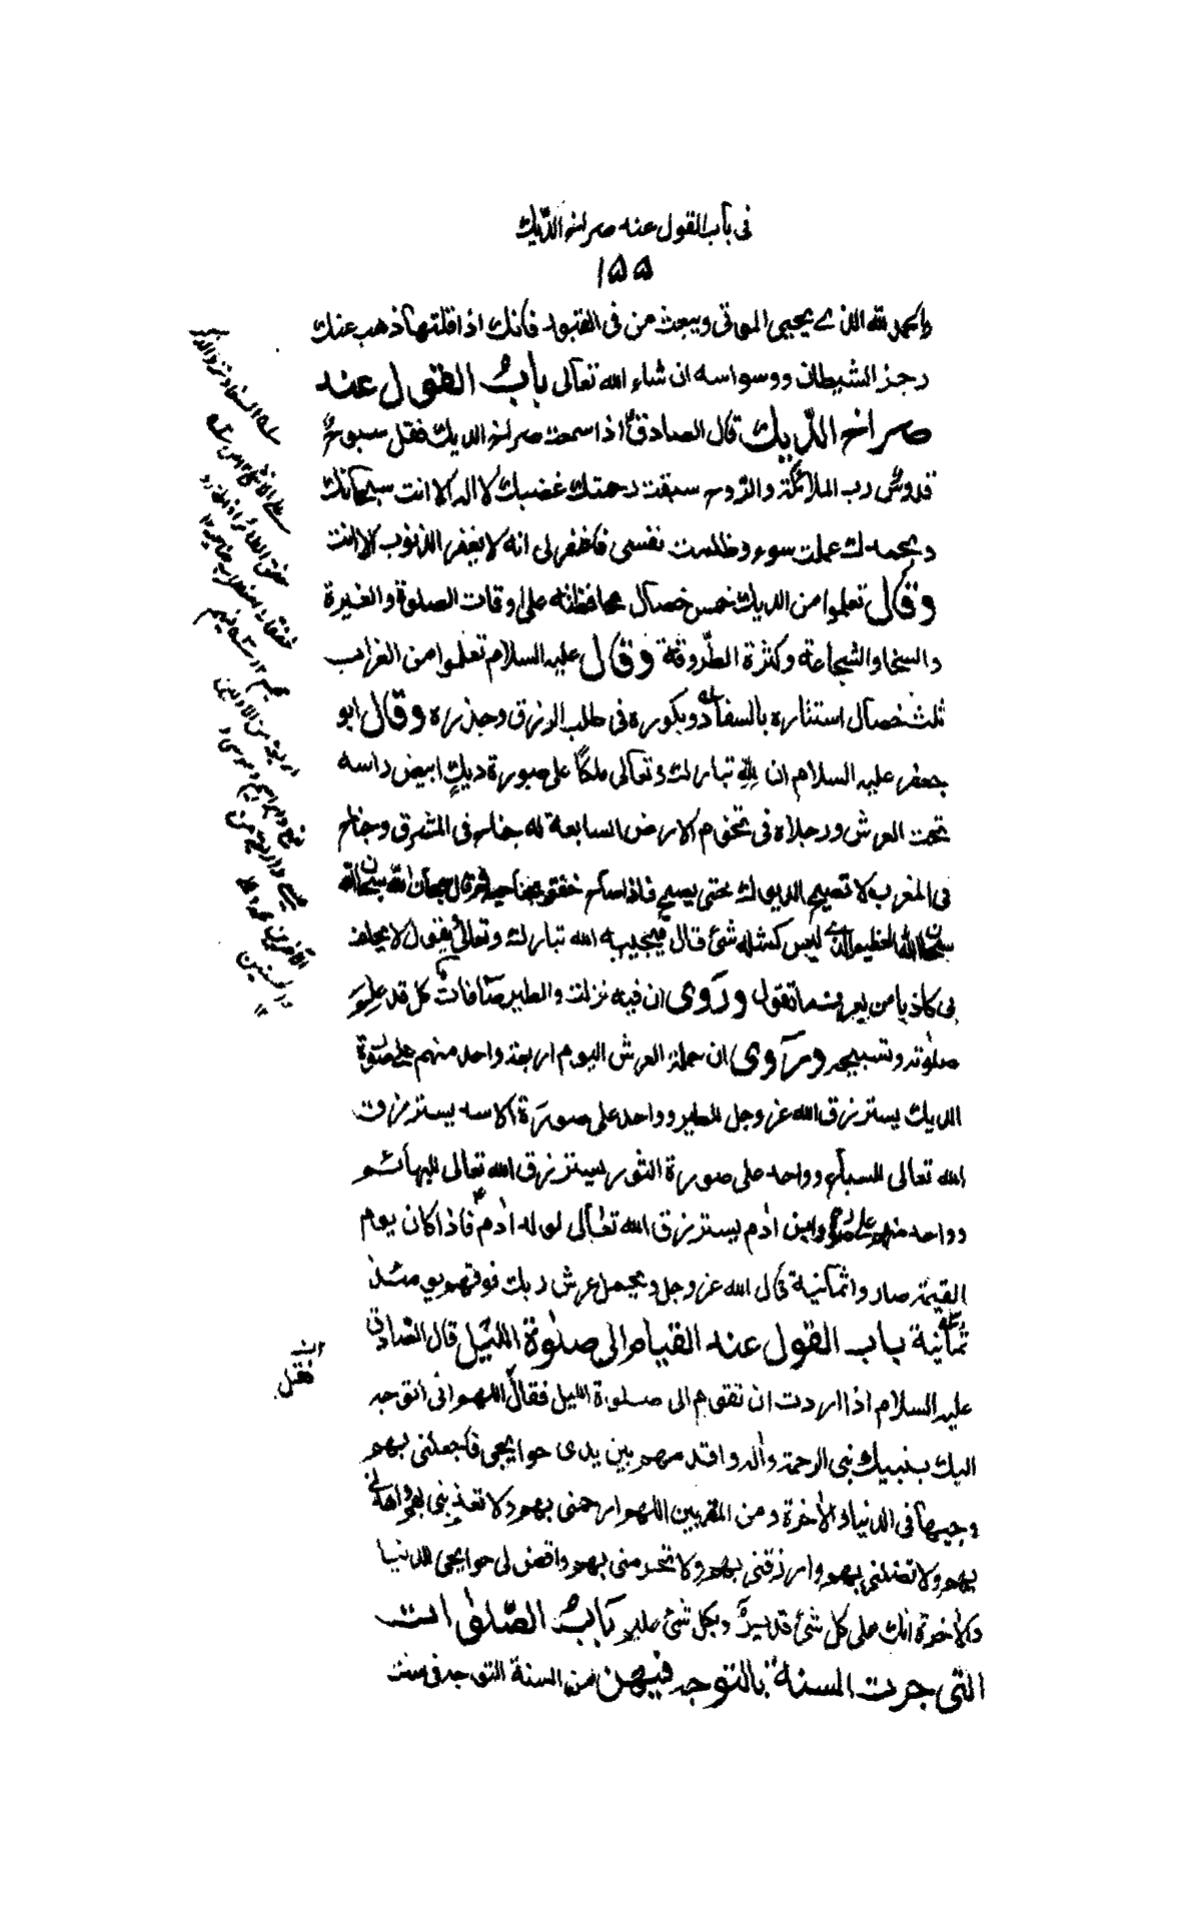 فی باب القول عند صراخ الدّیك
۱۵۵
والحمد لله الذی یحیی الموتی ویبعث من فی القبور فانك اذا قلتها ذهب عنك
رجز الشیطان ووسواسه ان شاء الله تعالی بابُ القول عند
صراخ الدّیك قال الصادق اذا سمعت صراخ الدیك فقل سبوحٌ
قدوسٌ رب الملائكة والروح سبقت رحمتك غضبك لا اله الا انت سبحانك
وبحمدك عملت سوء وظلمت نفسی فاغفر لی انه لا یغفر الذنوب الا انت
وقال تعلموا من الدیك خمس خصال محافظته علی اوقات الصلوة والغیرة
والسخا والشجاعة وكثرة الطّروقة وقال علیه السلام تعلموا من الغراب
ثلث خصال استتاره بالسفاد وبكوره فی طلب الرزق وحذره وقال ابو
جعفر علیه السلام ان لِلّهِ تبارك وتعالی ملكًا علی صورة دیكٍ ابیض راسه
تحت العرش ورجلاه فی تخوم الارض السابعة له جناح فی المشرق وجناح
فی المغرب لا تصیح الدیوك حتی یصیح فاذا صاح خفق بجناحیه ثم قال سبحان الله سبحان الله
سبحان الله العظیم الذی لیس كمثله شئ قال فیجیبه الله تبارك وتعالی یقول لا یحلف
بی كاذبا من یعرف ما تقول وروی ان فیه نزلت والطیر صافات كل قد علم
صلوته وتسبیحه وروی ان حملة العرش الیوم اربعة واحد منهم علی صورة
الدیك یسترزق الله عز وجل للطیر وواحد علی صورة الاسد یسترزق
الله تعالی للسباع وواحد علی صورة الثور یسترزق الله تعالی للبهائم
وواحد منهم علی صورة ابن ادم یسترزق الله تعالی لولد ادم فاذا كان یوم
القیمة صاروا ثمانیة قال الله عز وجل ویحمل عرش ربك فوقهم یومئذ
ثمانیة باب القول عند القیام الی صلوة اللیل قال الصادق
علیه السلام اذا اردت ان تقوم الی صلوة اللیل فقل اللهم انی اتوجه
الیك بنبیك نبی الرحمة واله واقدمهم بین یدی حوایجی فاجعلنی بهم
وجیها فی الدنیا والاخرة ومن المقربین اللهم ارحمنی بهم ولا تعذبنی بهم واهدنی
بهم ولا تضلنی بهم وارزقنی بهم ولا تحرمنی بهم واقض لی حوایجی للدنیا
والاخرة انك علی كل شئ قدیر وبكل شئ علیم بابُ الصّلوات
التی جرت السنة بالتوجه فیهن من السنة التوجه فی ست
فقل